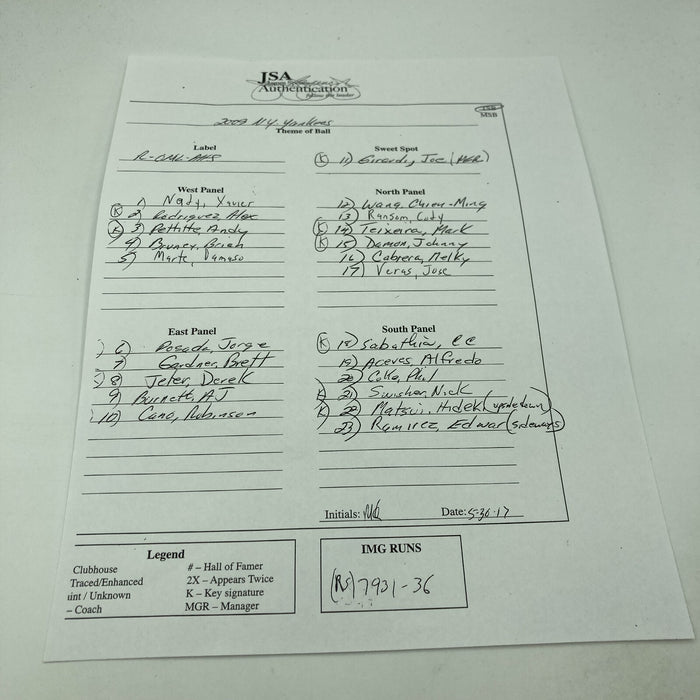 JSA
Authentication
follow the leader
JSB
MSB
2009 N.Y. Yankees
Theme of Ball
Label
R-OML-AHS
Sweet Spot
(K) 11) Girardi, Joe (MGR)
West Panel
1) Nady, Xavier
(K) 2) Rodriguez, Alex
(K) 3) Pettitte, Andy
4) Bruney, Brian
5) Marte, Damaso
North Panel
12) Wang, Chien-Ming
13) Ransom, Cody
(K) 14) Teixeira, Mark
(K) 15) Damon, Johnny
16) Cabrera, Melky
17) Veras, Jose
East Panel
6) Posada, Jorge
7) Gardner, Brett
8) Jeter, Derek
9) Burnett, AJ
10) Cano, Robinson
South Panel
(K) 18) Sabathia, CC
19) Aceves, Alfredo
20) Coke, Phil
K) 21) Swisher, Nick
K) 22) Matsui, Hideki (upsidedown)
23) Ramirez, Edwar (sideways)
Initials:
Date: 5-30-17
Legend
Clubhouse
Traced/Enhanced
uint / Unknown
– Coach
# – Hall of Famer
2X – Appears Twice
K – Key signature
MGR – Manager
IMG RUNS
(RS) 7931-36